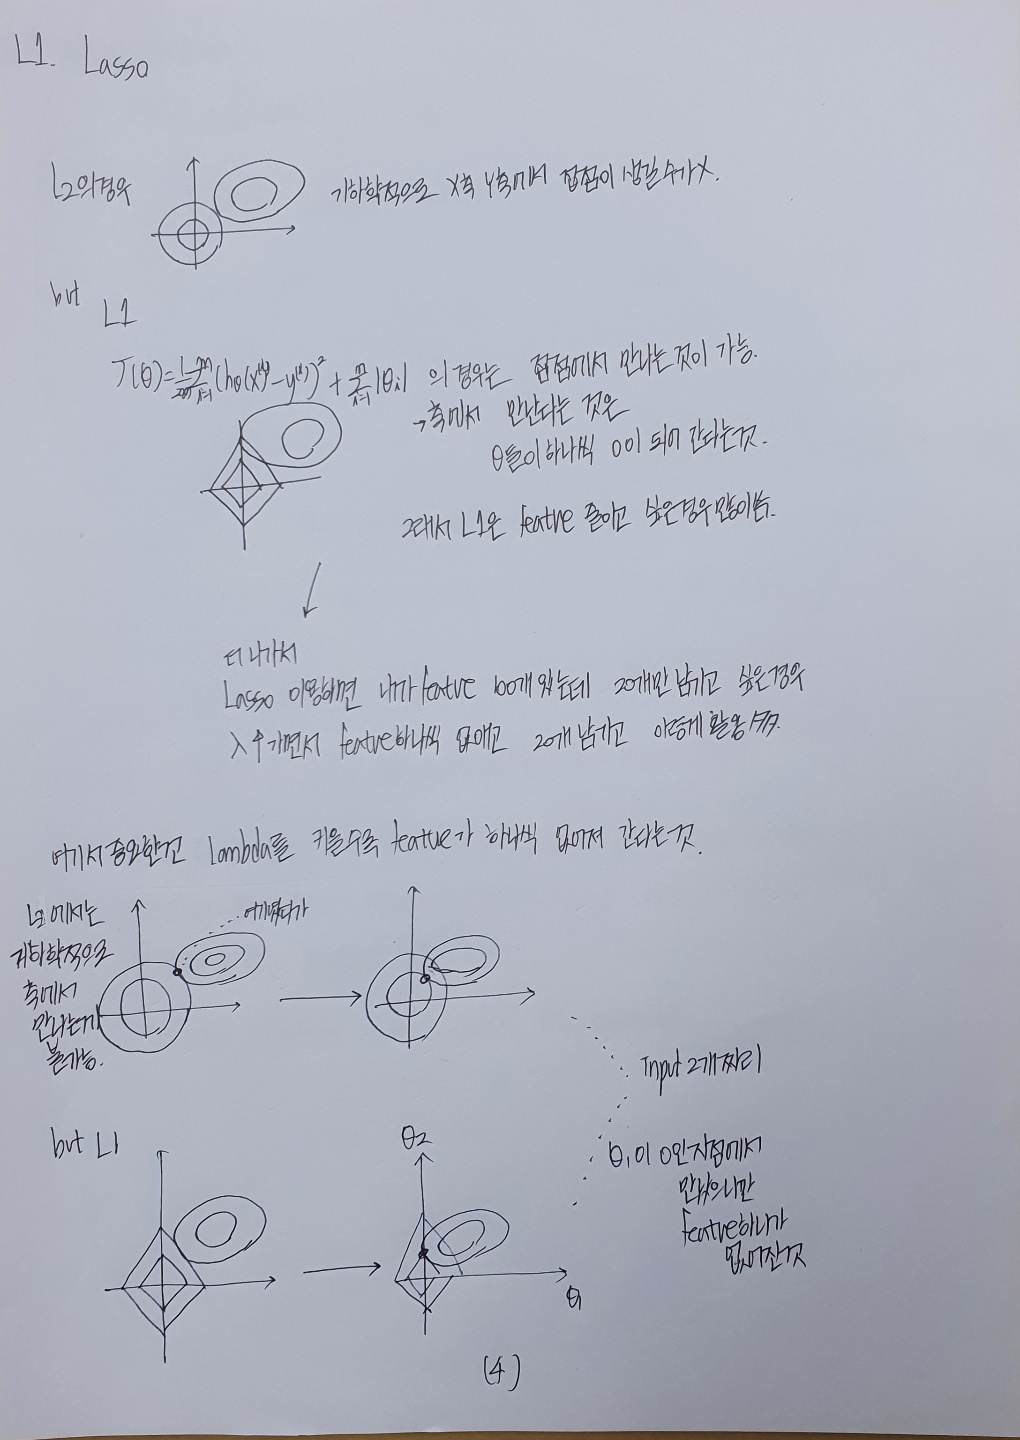 L1. Lasso
L2의경우
기하학적으로 X축 Y축에서 접점이 생길수가X.
but L1
J(θ)=1/2m Σ(hθ(x⁽ⁱ⁾)-y⁽ⁱ⁾)² + Σ|θi| 의 경우는 접점에서 만나는 것이 가능.
→축에서 만난다는 것은
θ들이 하나씩 0이 되어 간다는것.
그래서 L1은 featue 줄이고 싶은경우 많이씀.
더 나가서
Lasso 이용하면 내가 featue 100개 있는데 20개만 남기고 싶은경우
λ↑가면서 featue하나씩 없애고 20개 남기고 이렇게 활용
여기서 중요한건 lambda를 키울수록 featue가 하나씩 없어져 간다는것.
L2 에서는
기하학적으로
축에서
만나는게
불가능.
여기였다가
Input 2개짜리
but L1
θ2
θ1
θ1이 0인지점에서
만났으니깐
featue하나가
없어진것
(4)